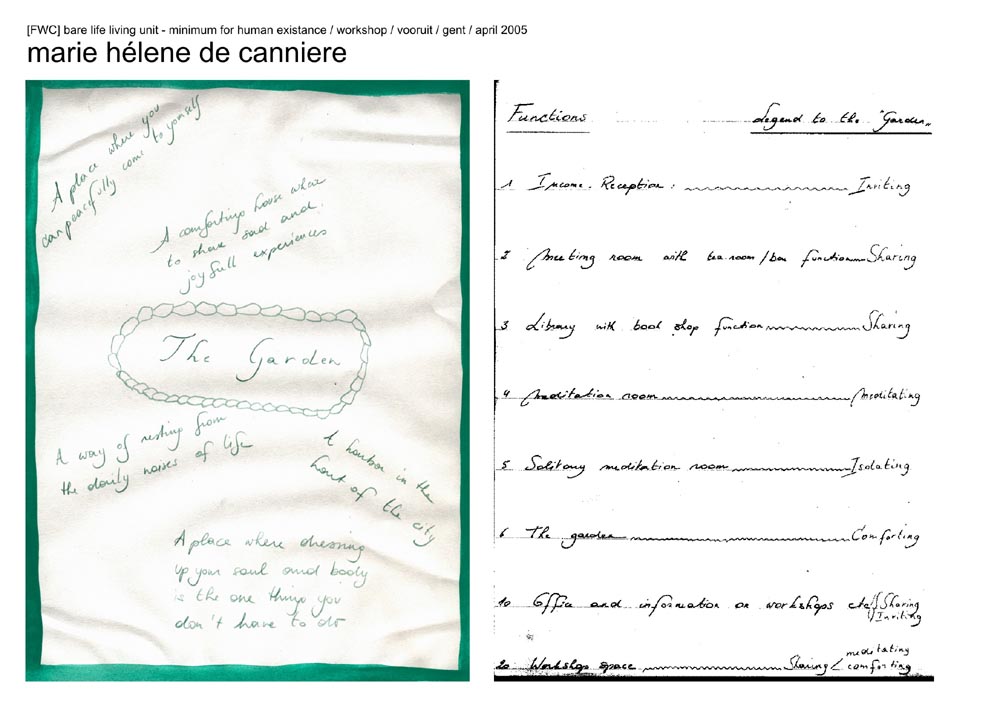 [FWC] bare life living unit - minimum for human existance / workshop / vooruit / gent / april 2005
marie hélene de canniere
A place where you
can peacefully come to yourself
A comforting house whar
to share sad and
joyfull experiences
The Garden
A way of resting from
the daily noises of life
A harbor in the
heart of the city
A place where dressing
up your soul and body
is the one thing you
don't have to do
Functions Legend to the "Garden"
1 Income. Reception : Inviting
2 Meeting room with tea-room / bar function Sharing
3 Library with book shop function Sharing
4 Meditation room Meditating
5 Solitary meditation room Isolating
6 The garden Comforting
10 Office and information on workshops Sharing
Inviting
20 Workshop space Sharing / meditating
comforting